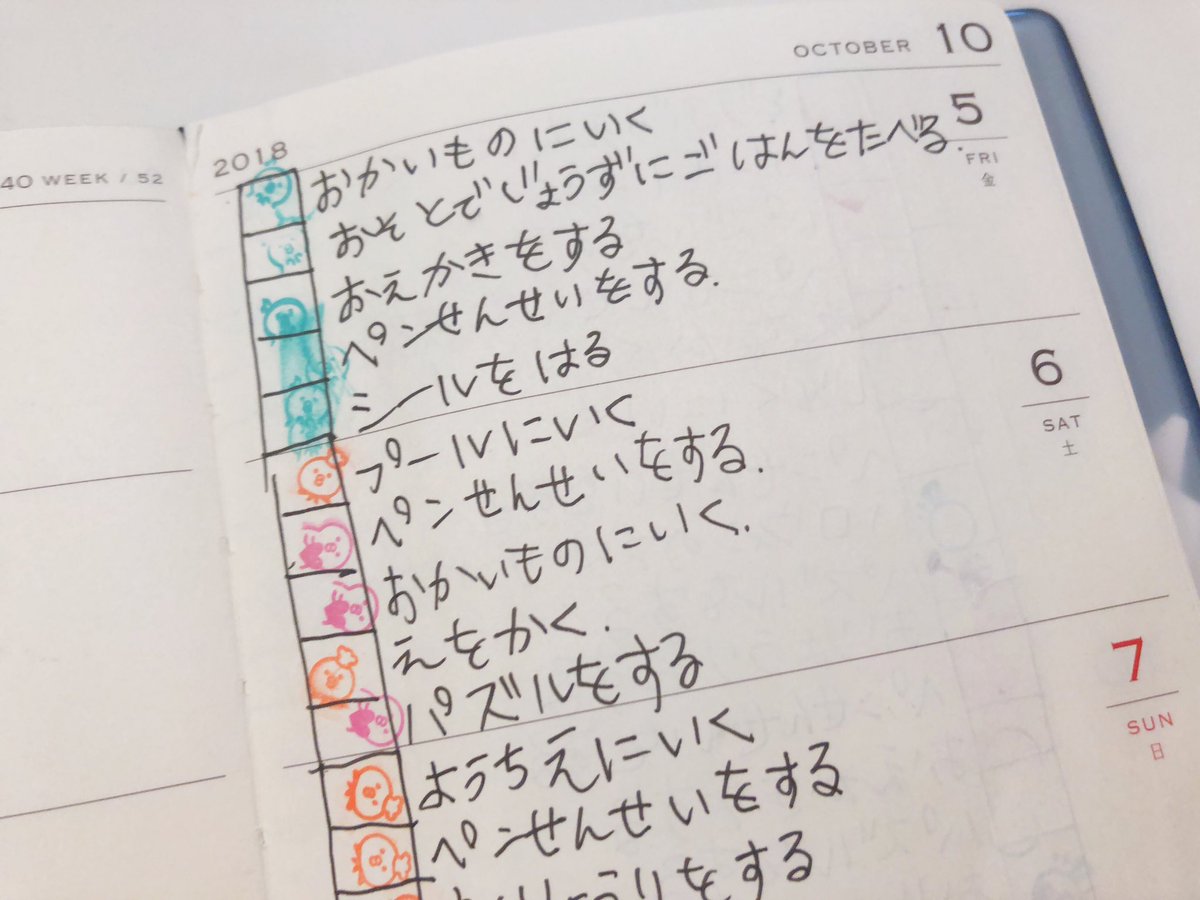 40 WEEK / 52
OCTOBER 10
2018
5
FRI
金
おかいものにいく
おそとでじょうずにごはんをたべる.
おえかきをする
ペンせんせいをする.
シールをはる
6
SAT
土
プールにいく
ペンせんせいをする.
おかいものにいく.
えをかく.
パズルをする
7
SUN
日
ようちえにいく
ペンせんせいをする
をする